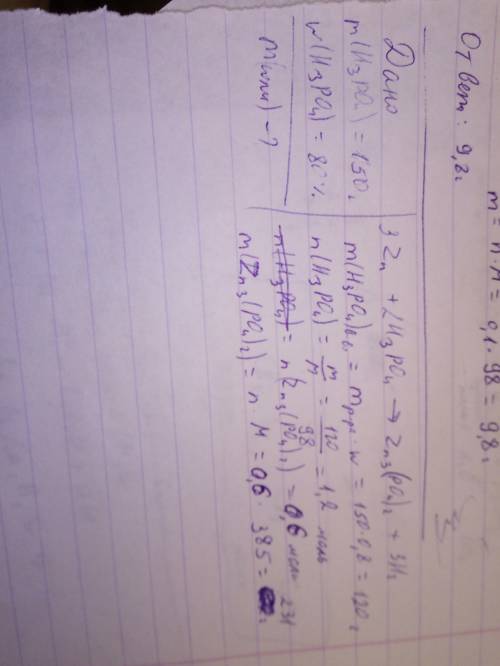 m = n·M = 0,1 · 98 = 9,8 г
Ответ: 9,8 г
Дано
m(H3PO4) = 150 г
w(H3PO4) = 80%
m(соли) - ?
3Zn + 2H3PO4 → Zn3(PO4)2 + 3H2
m(H3PO4)в-ва = mр-ра · w = 150 · 0,8 = 120 г
n(H3PO4) = m/M = 120/98 = 1,2 моль
n(H3PO4) = n(Zn3(PO4)2) = 0,6 моль
m(Zn3(PO4)2) = n · M = 0,6 · 385 = 231 г